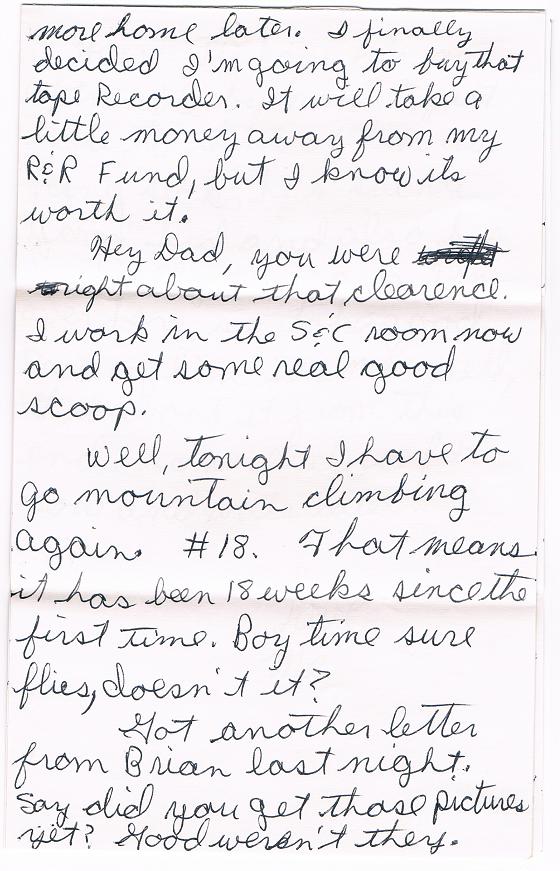 more home later. I finally
decided I'm going to buy that
tape Recorder. It will take a
little money away from my
R&R Fund, but I know its
worth it.
Hey Dad, you were
right about that clearence.
I work in the S&C room now
and get some real good
scoop.
Well, tonight I have to
go mountain climbing
again. #18. That means
it has been 18 weeks since the
first time. Boy time sure
flies, doesn't it?
Got another letter
from Brian last night.
Say did you get those pictures
yet? Good weren't they.